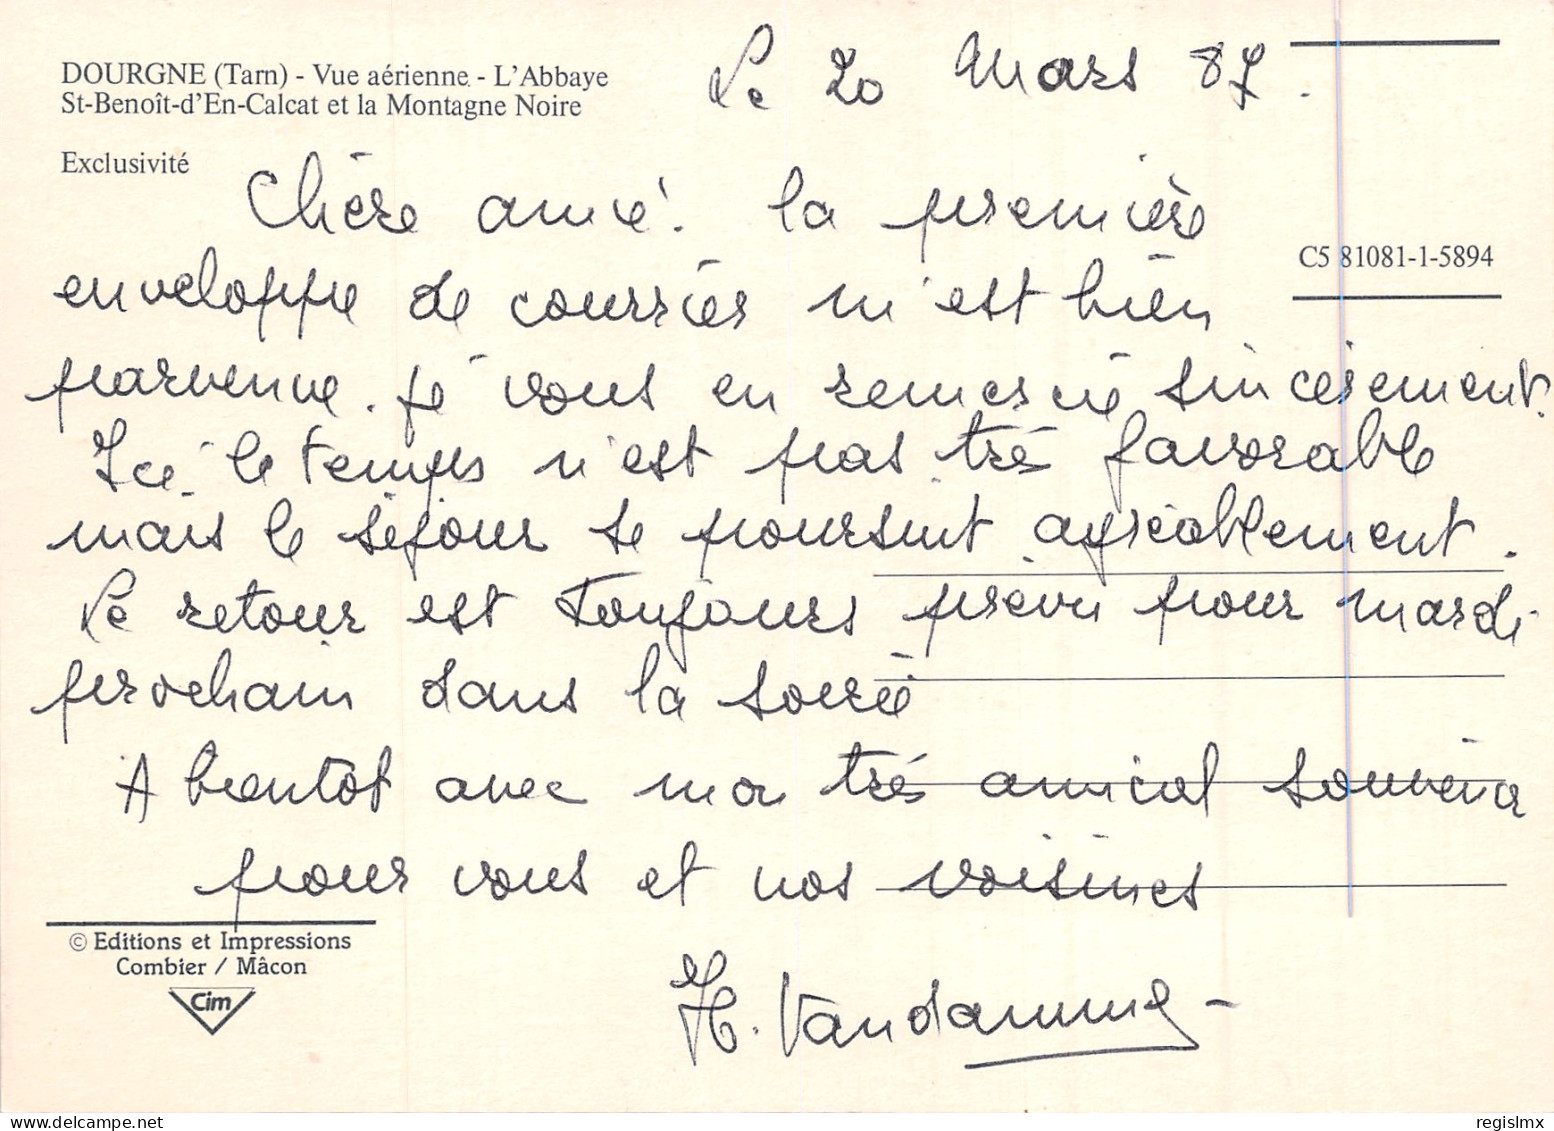 DOURGNE (Tarn) - Vue aérienne - L'Abbaye
St-Benoît-d'En-Calcat et la Montagne Noire
Exclusivité
C5 81081-1-5894
Le 20 Mars 87.
Chère amie. la première
enveloppe de courrier m'est bien
parvenue. je vous en remercie sincèrement.
Ici le temps n'est pas très favorable
mais le séjour se poursuit agréablement.
Le retour est toujours prévu pour mardi
prochain dans la soirée
A bientôt avec mon très amical souvenir
pour vous et nos voisines
H. Vandamme
© Editions et Impressions
Combier / Mâcon
Cim
regislmx